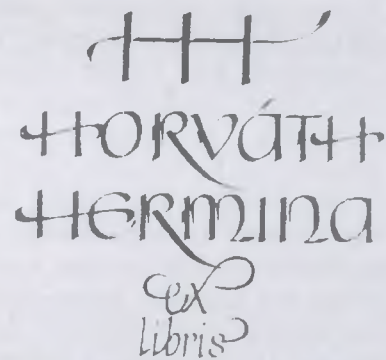 HH
HORVÁTH
HERMINA
ex
libris